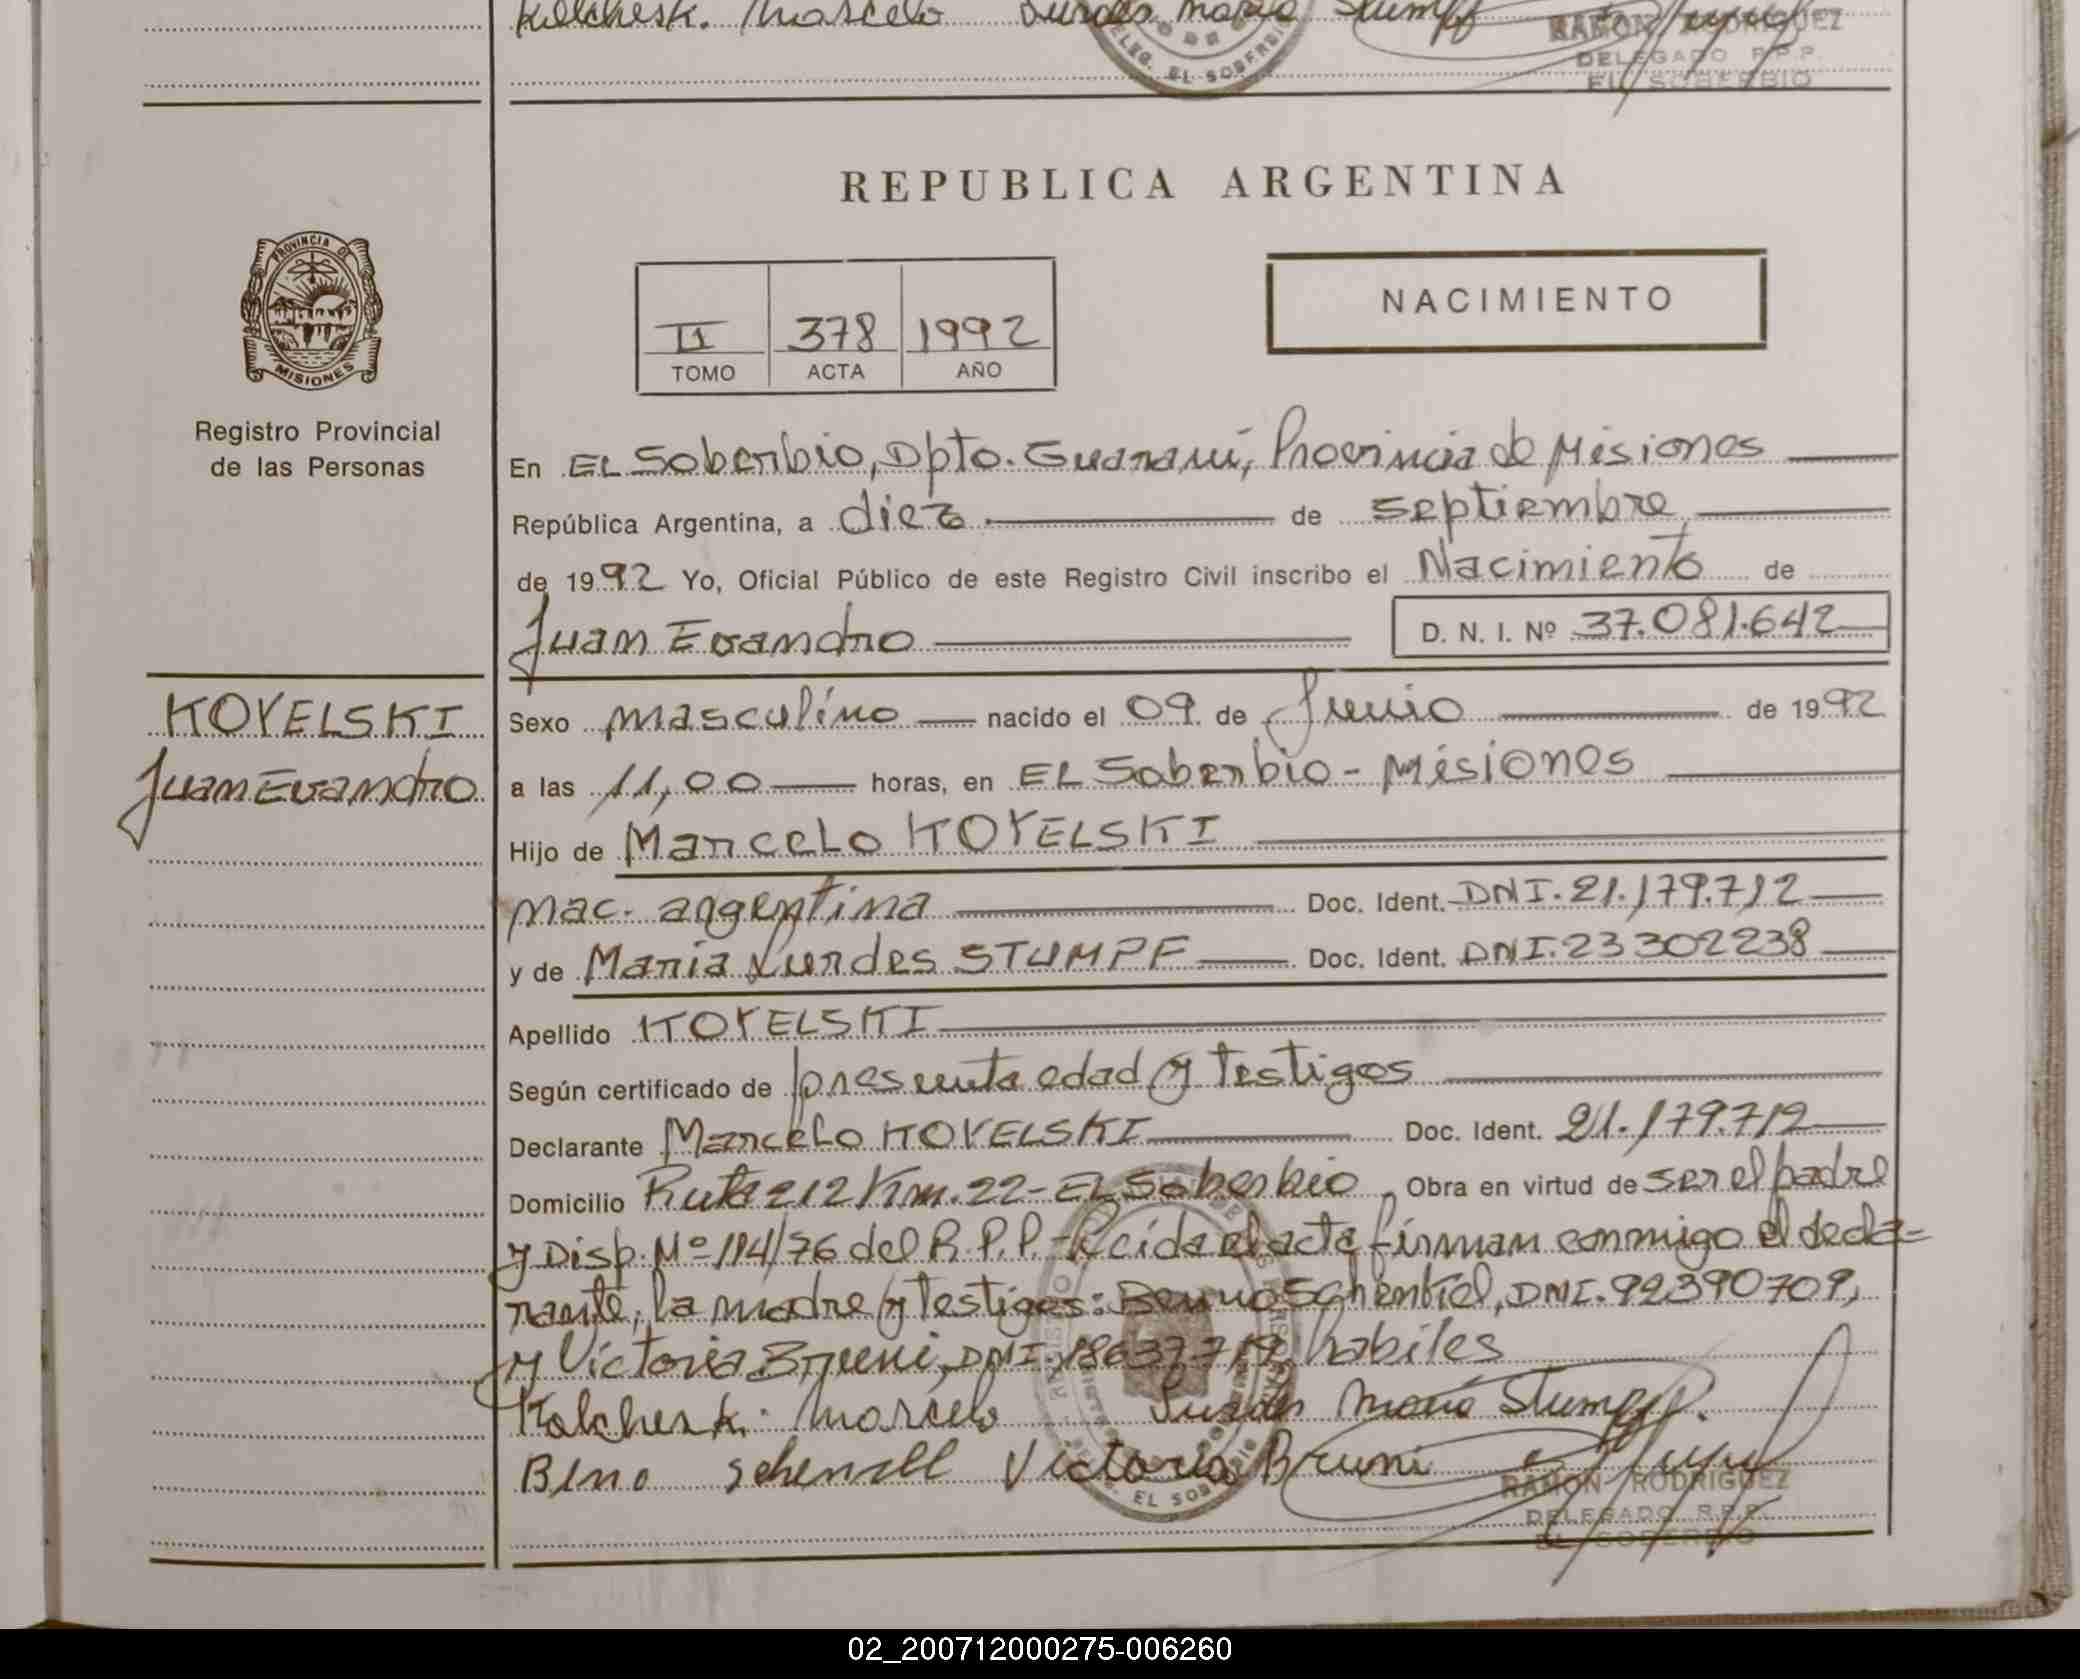 Kolchesk. Marcelo Lurdes Maria Stumpf
DELEG. EL SOBERBIO
RAMON RODRIGUEZ
DELEGADO R.P.P.
EL SOBERBIO
REPUBLICA ARGENTINA
PROVINCIA DE MISIONES
Registro Provincial
de las Personas
II 378 1992
TOMO ACTA AÑO
NACIMIENTO
En EL Soberbio, Dpto. Guaraní, Provincia de Misiones
República Argentina, a diez de septiembre
de 1992 Yo, Oficial Público de este Registro Civil inscribo el Nacimiento de
Juan Evandro D. N. I. Nº 37.081.642
KOYELSKI
Juan Evandro
Sexo masculino nacido el 09 de Junio de 1992
a las 11,00 horas, en EL Soberbio - Misiones
Hijo de Marcelo KOYELSKI
nac. argentina Doc. Ident. DNI. 21.179.712
y de Maria Lurdes STUMPF Doc. Ident. DNI. 23302238
Apellido KOYELSKI
Según certificado de presunta edad y testigos
Declarante Marcelo KOYELSKI Doc. Ident. 21.179.712
Domicilio Ruta 212 Km. 22 - EL Soberbio, Obra en virtud de ser el padre
y Disp. Nº 114/76 del R.P.P. - Leída el acta firman conmigo el decla=
rante, la madre y testigos: Benno Schenkel, DNI. 92390709,
y Victoria Bruni, DNI. habiles
Kolchesk. Marcelo Lurdes Maria Stumpf.
Beno Victoria Bruni
RAMON RODRIGUEZ
DELEGADO R.P.P.
EL SOBERBIO
02_200712000275-006260